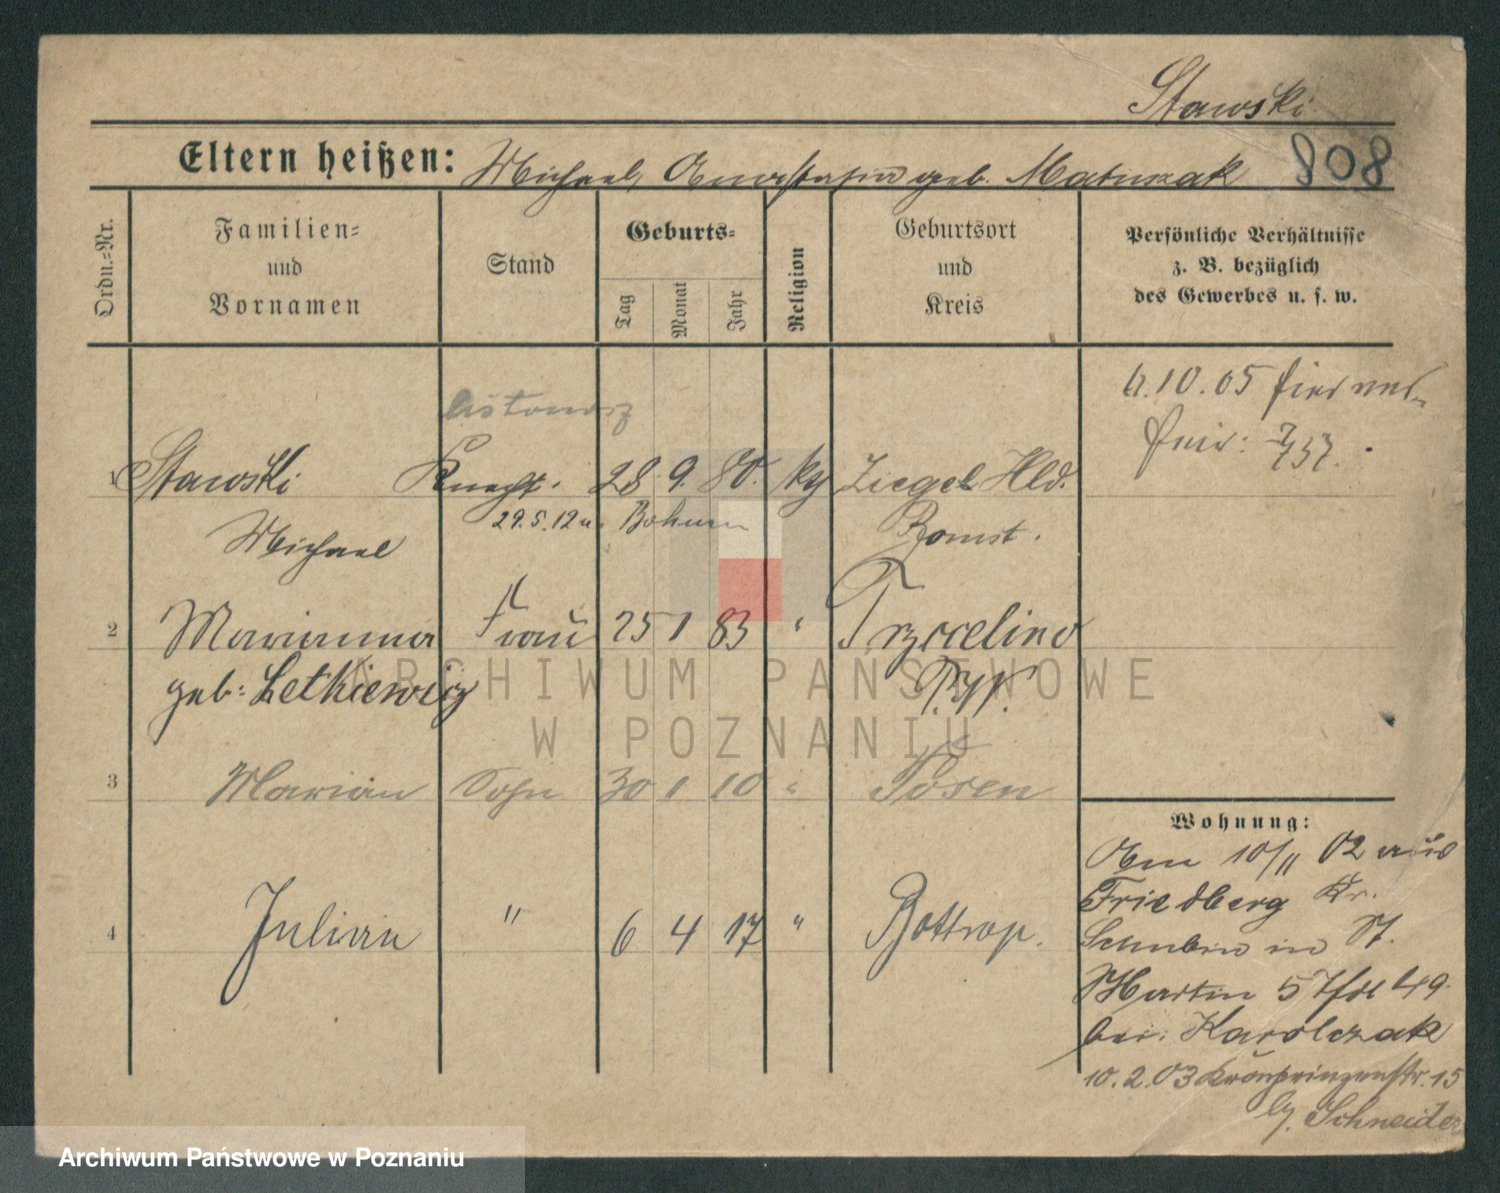 Stawski
Eltern heißen: Michael, Anastasia geb. Matuszak 808
Ordn.-Nr.
Familien-
und
Vornamen
Stand
Geburts-
Tag
Monat
Jahr
Religion
Geburtsort
und
Kreis
Persönliche Verhältnisse
z. B. bezüglich
des Gewerbes u. s. w.
listonosz
1 Stawski Knecht. 28 9. 80. kg Ziegel Hld.
29.5.12 Bomst.
Michael
2 Marianna Frau 25 1 83 " Trzcelino
geb: Letkiewicz P.W.
3 Marian Sohn 30 1 10 " Posen
4 Julian " 6 4 17 " Bottrop.
10.05
737.
Wohnung:
Am 10/11 02 aus
Friedberg Kr.
Schubin in St.
Martin 49.
bei: Karolczak
10.2.03 Kronprinzenstr. 15
b/. Schneider
ARCHIWUM PAŃSTWOWE
W POZNANIU
Archiwum Państwowe w Poznaniu